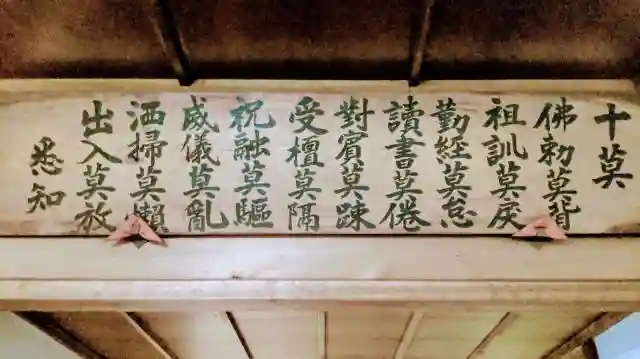 十莫
佛勅莫背
祖訓莫戻
勤経莫怠
讀書莫倦
對賓莫踈
受檀莫隔
祝融莫驅
威儀莫亂
洒掃莫懶
出入莫放
悉知